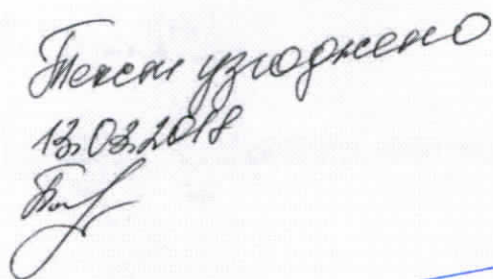 Текст узгоджено
13.03.2018